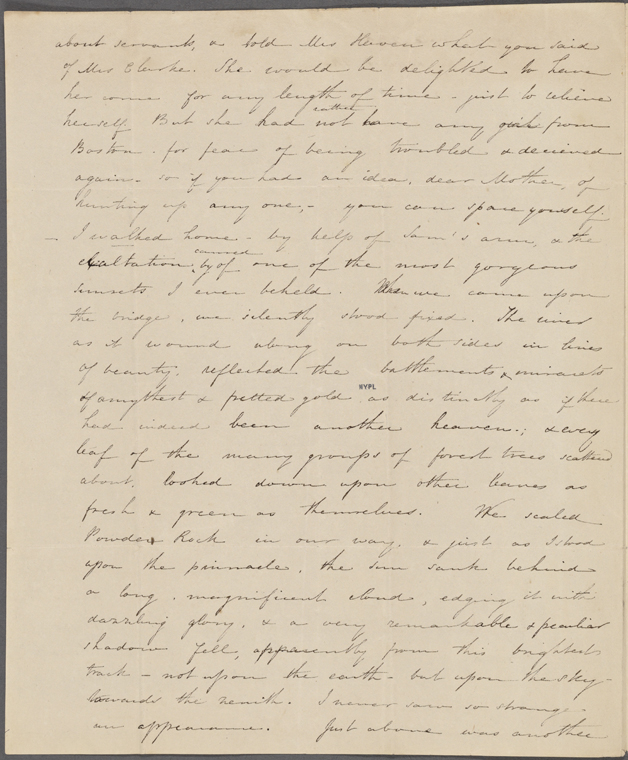 about servants, & told Mrs Haven what you said
of Mrs Clarke. She would be delighted to have
her come for any length of time - just to relieve
herself. But she had rather not have any girls from
Boston - for fear of being troubled & deceived
again - so if you had an idea, dear Mother, of
hunting up any one, - you can spare yourself.
- I walked home - by help of Sam's arm, & the
exultation caused by of one of the most gorgeous
sunsets I ever beheld. When we came upon
the bridge, we silently stood fixed. The river
as it wound along on both sides in lines
of beauty, reflected the battlements & minarets
NYPL
of amythest & fretted gold as distinctly as if there
had indeed been another heaven; & every
leaf of the many groups of forest trees scattered
about, looked down upon other leaves as
fresh & green as themselves. We scaled
Powder Rock in our way, & just as I stood
upon the pinnacle, the sun sank behind
a long, magnificent cloud, edging it with
dazzling glory, & a very remarkable & peculiar
shadow fell, apparently from this brightest
track - not upon the earth - but upon the sky -
towards the zenith. I never saw so strange
an appearance. Just above was another